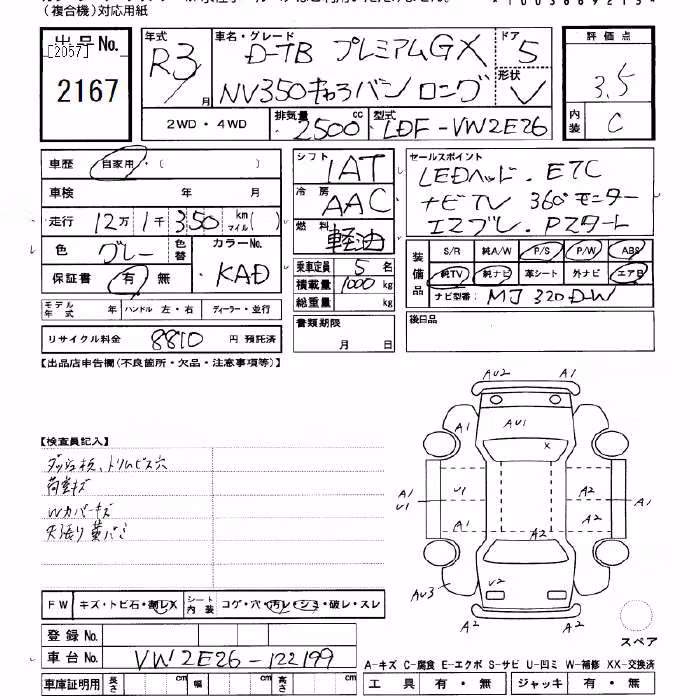 (複合機)対応用紙
出品No. 年式 車名・グレード ドア 評価点
[2057] R3 D-TB プレミアムGX 5 3.5
2167 月 NV350キャラバン ロング 形状 V 内装 C
2WD・4WD 排気量 2500 cc 型式 LDF-VW2E26
車歴 自家用・( ) シフト 1AT セールスポイント
車検 年 月 冷房 AAC LEDヘッド.ETC
走行 12万1千350 km マイル( ) ナビTV 360°モニター
色 グレー 色替 カラーNo. KAD 燃料 軽油 エマブレ.Pスタート
保証書 有・無 乗車定員 5名
積載量 1000 kg
総重量 kg
装備品 S/R 純A/W P/S P/W ABS
純TV 純ナビ 革シート 外ナビ エアB
ナビ型番: MJ320D-W
モデル年式 年 ハンドル 左・右 ディーラー・並行 書類期限 月 日 後日品
リサイクル料金 8810 円 預託済
【出品店申告欄(不良箇所・欠品・注意事項等)】
【検査員記入】
トリムビス穴
荷室キズ
Wカバーキズ
天張り
AU2 A1
A1 AU1 A1
X
A1 U1 U1 A2 A1
A1 A2 A2
AU3 U2 A2
A2
FW キズ・トビ石・割レX シート内装 コゲ・穴・汚レ・シミ・破レ・スレ
スペア
登録No.
車台No. VW2E26-122199
A-キズ C-腐食 E-エクボ S-サビ U-凹ミ W-補修 XX-交換済
車庫証明用 長さ cm 幅 cm 高さ cm 工具 有・無 ジャッキ 有・無